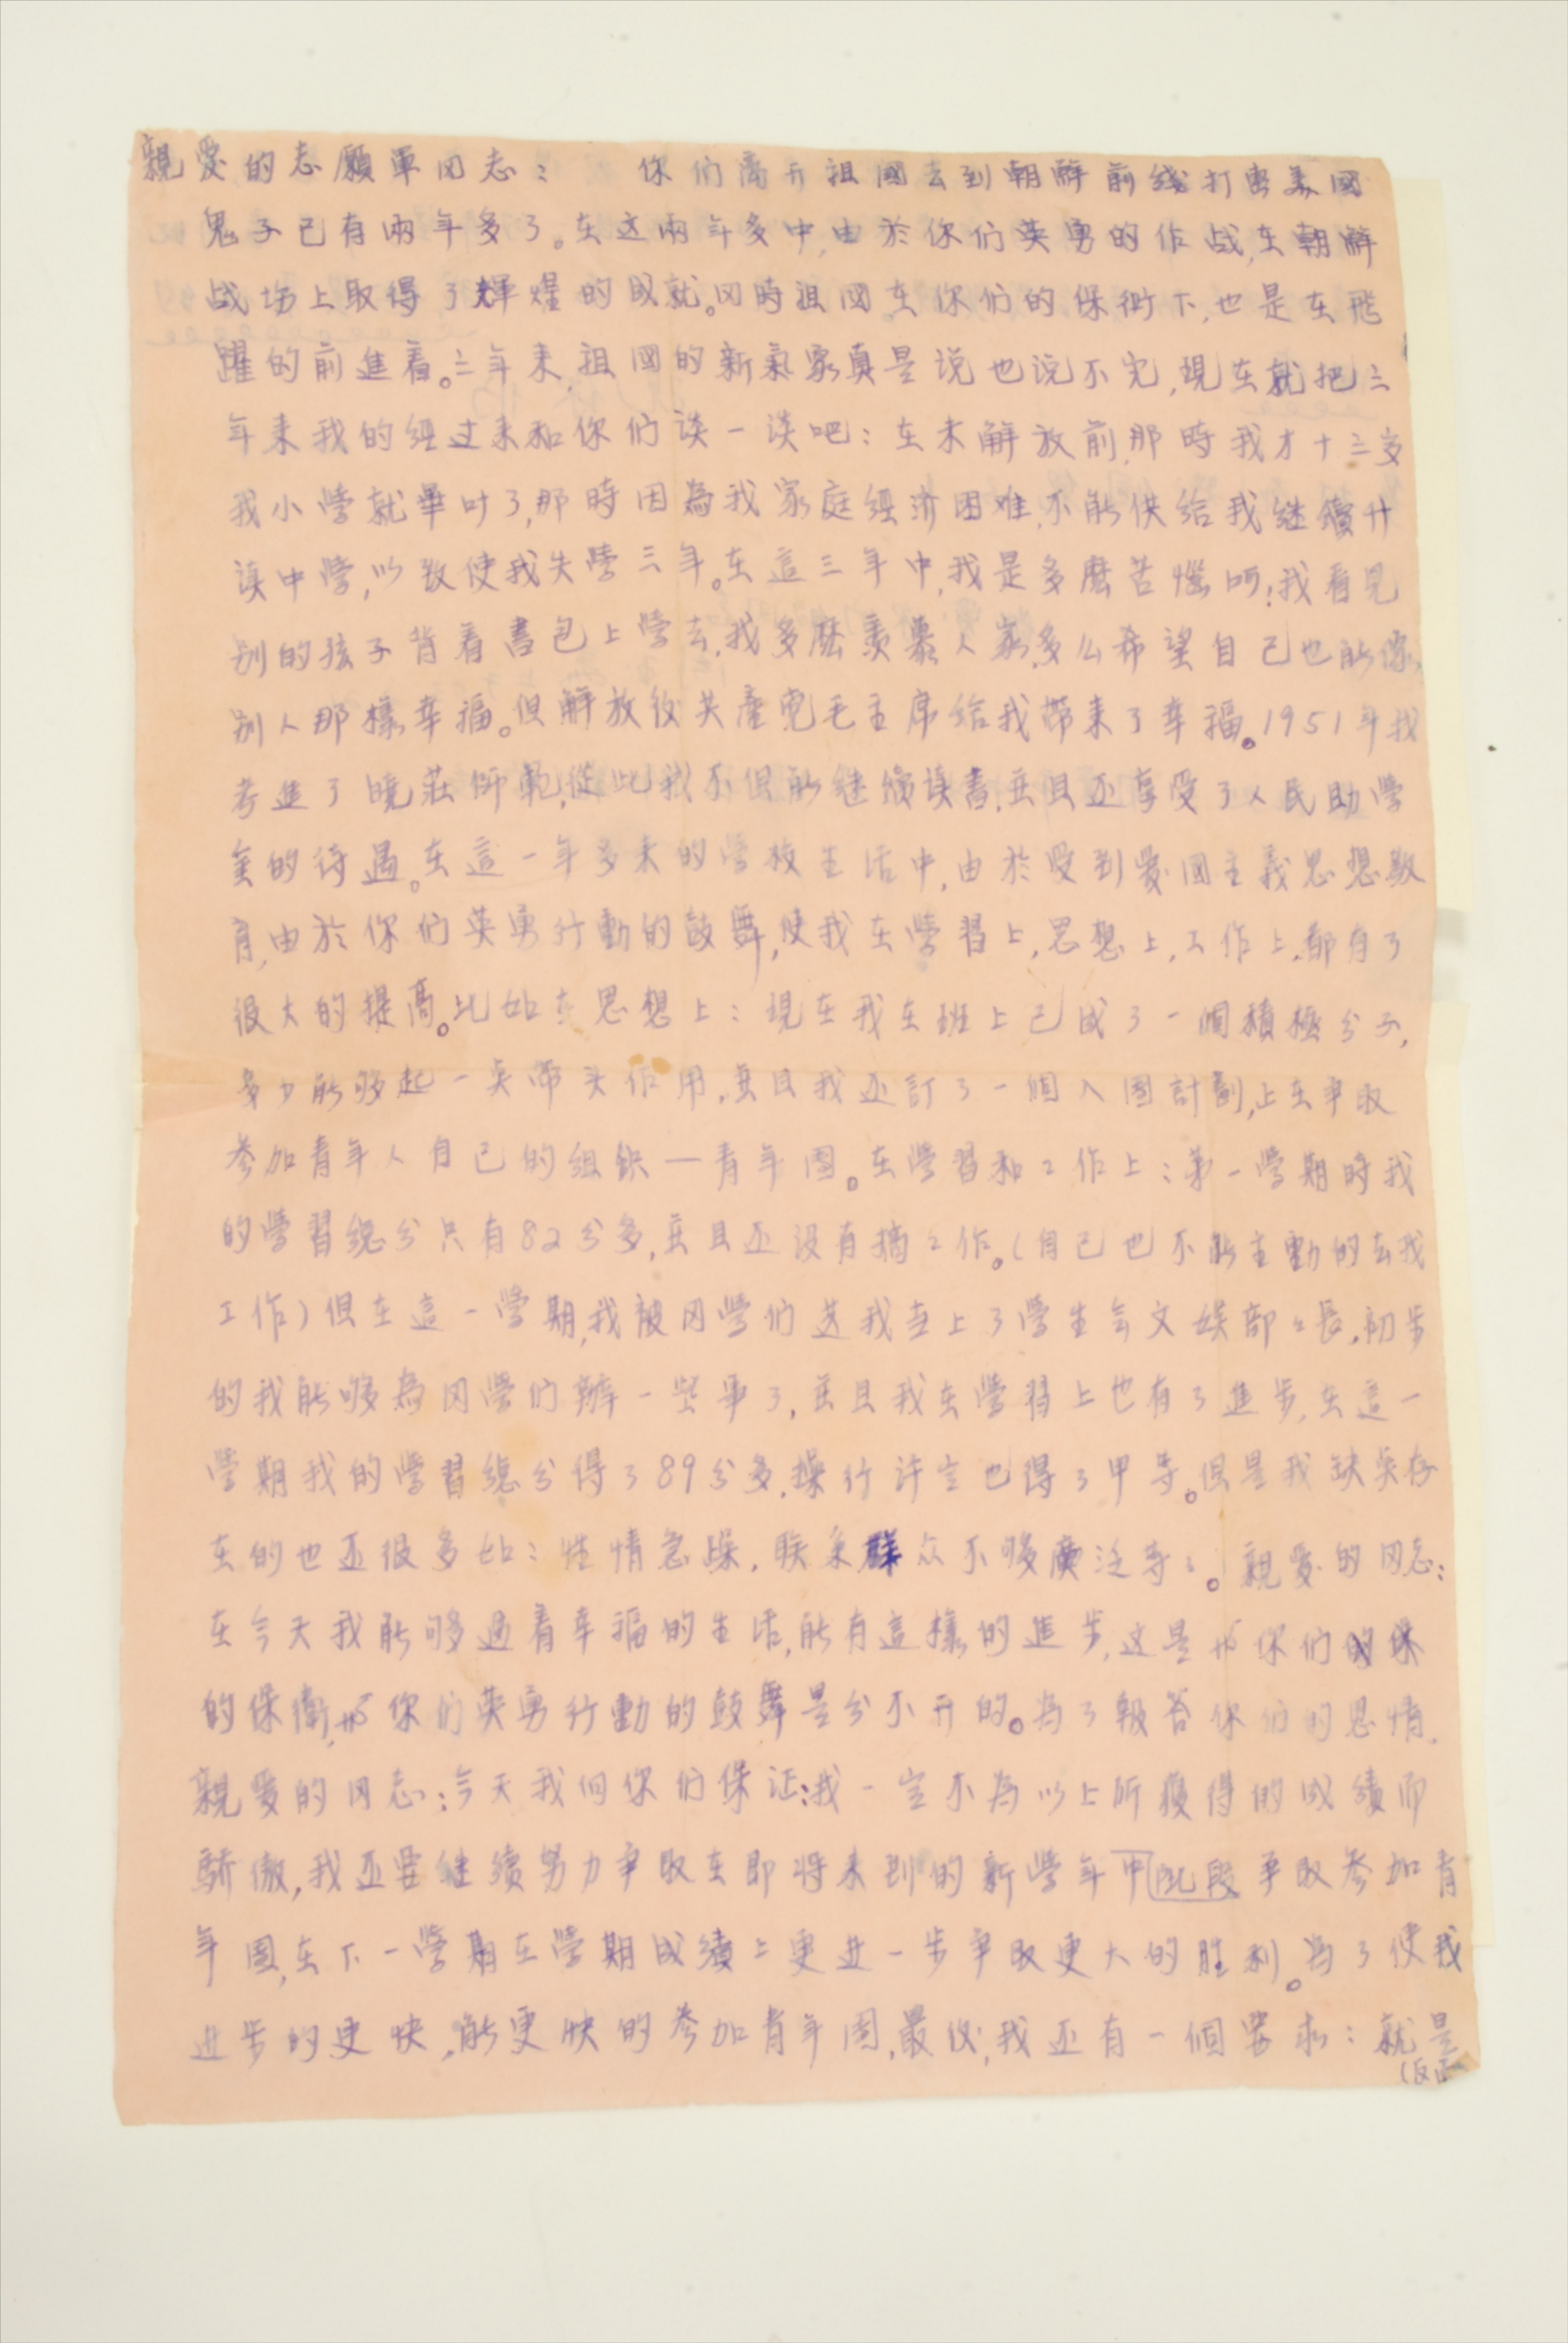 親愛的志願軍同志： 你们离开祖國去到朝鮮前线打击美國
鬼子已有兩年多了。在这兩年多中,由於你们英勇的作战,在朝鮮
战场上取得了輝煌的成就。同時祖国在你们的保衛下,也是在飛
躍的前進着。三年来,祖國的新氣象真是说也说不完,現在就把三
年来我的經过来和你们谈一谈吧：在未解放前,那時我才十三岁
我小學就畢业了,那時因為我家庭經济困难,不能供给我继續升
读中學,以致使我失學三年。在這三年中,我是多麽苦惱呵!我看見
别的孩子背着書包上學去,我多麽羨慕人家,多么希望自己也能像
别人那樣幸福。但解放後共產党毛主席给我帶来了幸福。1951年我
考進了曉莊师範,從此我不但能继續读書,并且还享受了人民助學
金的待遇。在這一年多来的學校生活中,由於受到愛國主義思想教
育,由於你们英勇行動的鼓舞,使我在學習上,思想上,工作上,都有了
很大的提高。比如在思想上：現在我在班上已成了一個積極分子,
多少能够起一点帶头作用,并且我还訂了一個入团計劃,上在爭取
参加青年人自己的组织—青年团。在學習和工作上：第一學期時我
的學習總分只有82分多,并且还没有搞工作。(自己也不能主動的去找
工作)但在這一學期,我被同學们选我当上了學生会文娱部々長,初步
的我能够為同學们辦一些事了,并且我在學習上也有了進步,在這一
學期我的學習總分得了89分多,操行评定也得了甲等。但是我缺点存
在的也还很多如：性情急躁,联系群众不够廣泛等々。親愛的同志：
在今天我能够過着幸福的生活,能有這樣的進步,这是和你们的保
的保衛,和你们英勇行動的鼓舞是分不开的。為了報答你们的恩情,
親愛的同志：今天我向你们保证:我一定不為以上所獲得的成績而
驕傲,我还要继續努力爭取在即將来到的新學年中此段爭取参加青
年团,在下一學期在學期成績上更进一步爭取更大的胜利。為了使我
进步的更快,能更快的参加青年团,最後,我还有一個要求：就是
(反面